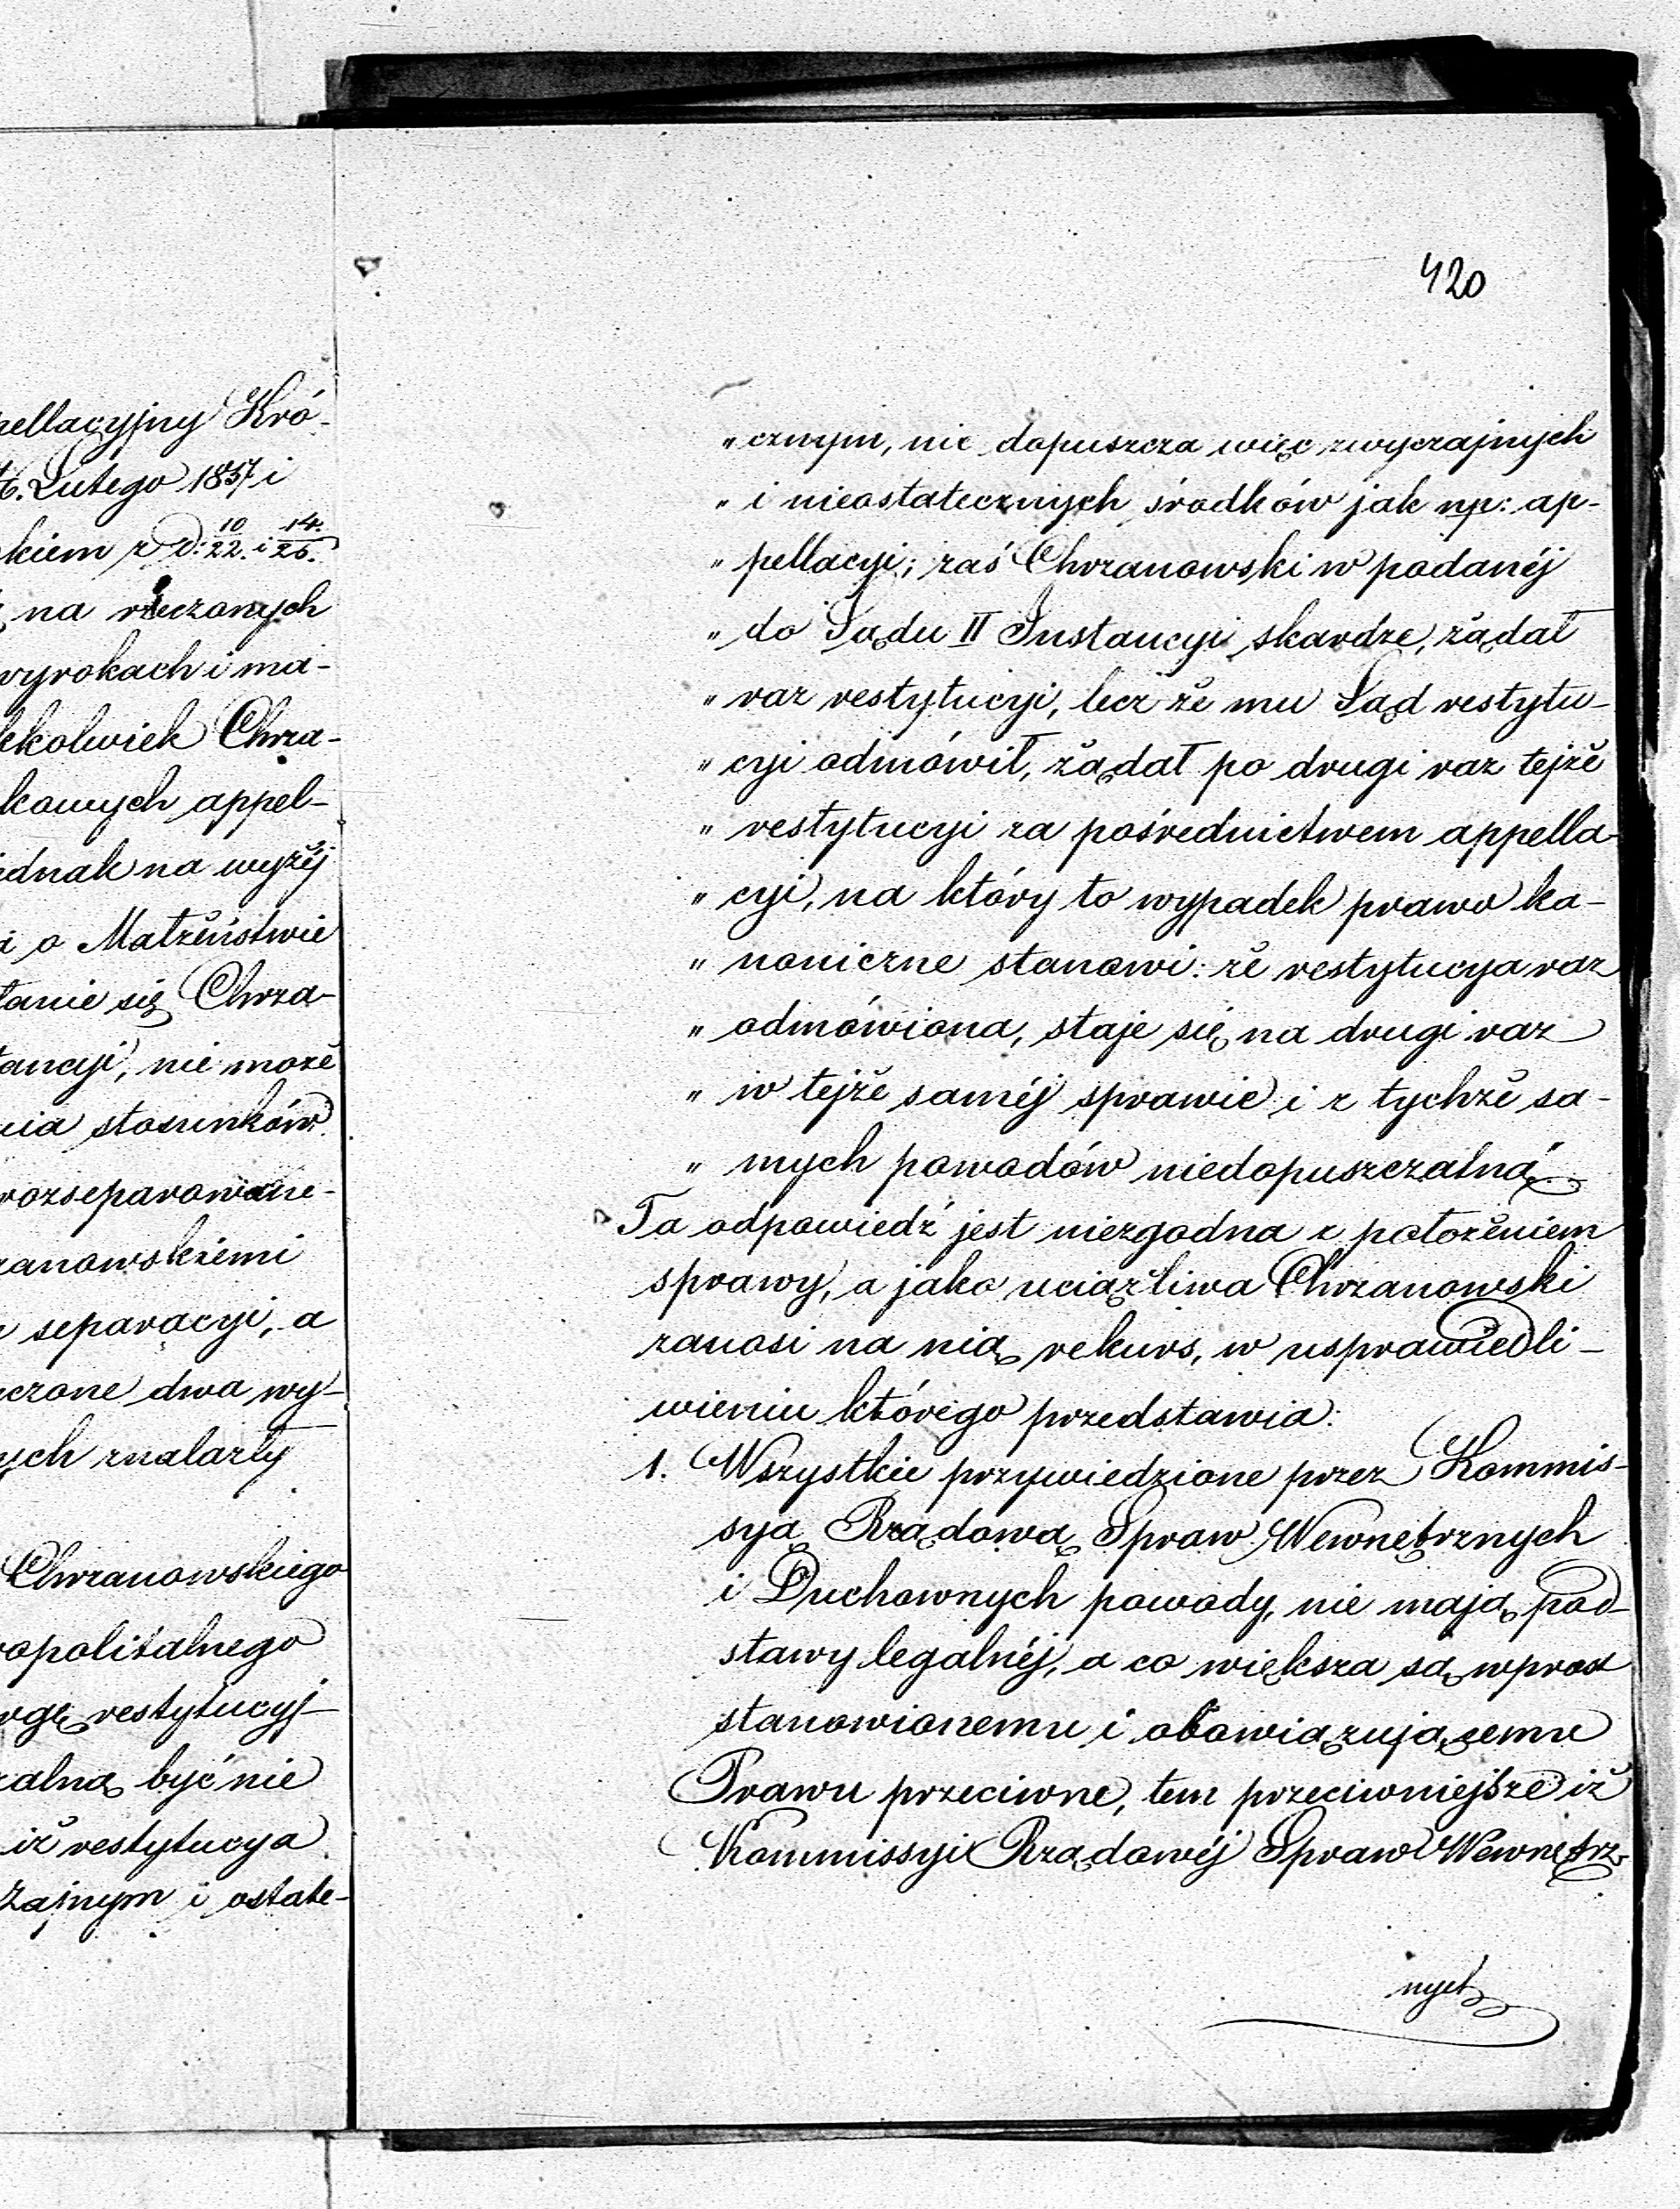 pellacyjny Kró-
6. Lutego 1857 i
kiem z d: 10/22. i 14/26.
na rzeczonych
wyrokach i ma-
kolwiek Chrza-
kowych appel-
jednak na wyżéj
i o Małżeństwie
tanie się Chrza-
tancyi, nie może
nia stosunków
rozseparowane-
zanowskiemi
separacyi, a
czone dwa wy-
ych znalazły
Chrzanowskiego
ropolitalnego
rgę restytucyj-
zalną być nie
iż restytucya
zajnym i ostate-
420
" cznym, nie dopuszcza więc zwyczajnych
" i nieostatecznych środków jak np: ap-
" pellacyi; zaś Chrzanowski w podanéj
" do Sądu II Instancyi skardze, żądał
" raz restytucyi, lecz że mu Sąd restytu-
" cyi odmówił, żądał po drugi raz tejże
" restytucyi za pośrednictwem appella-
" cyi, na który to wypadek prawo ka-
" noniczne stanowi: że restytucya raz
" odmówiona, staje się na drugi raz
" w tejże saméj sprawie i z tychże sa-
" mych powodów niedopuszczalną"
Ta odpowiedź jest niezgodna z położeniem
sprawy, a jako uciążliwa Chrzanowski
zanosi na nią rekurs, w usprawiedli-
wieniu którego przedstawia:
1. Wszystkie przywiedzione przez Kommis-
syą Rządową Spraw Wewnętrznych
i Duchownych powody, nie mają pod-
stawy legalnéj, a co większa są wprost
stanowionemu i obowiązującemu
Prawu przeciwne, tem przeciwniejsze iż
Kommissyi Rządowéj Spraw Wewnętrz-
nych